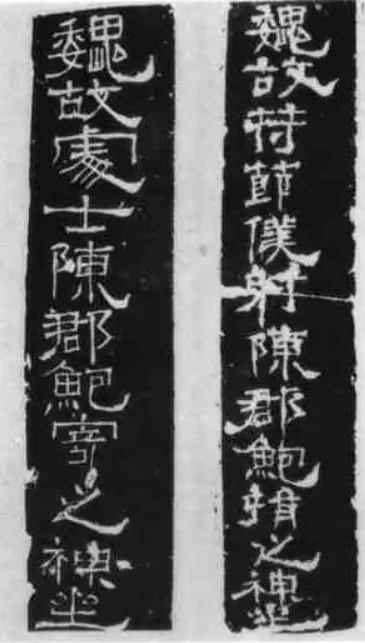 魏故苻節僕射陳郡鮑捐之神坐
魏故處士陳郡鮑寄之神坐